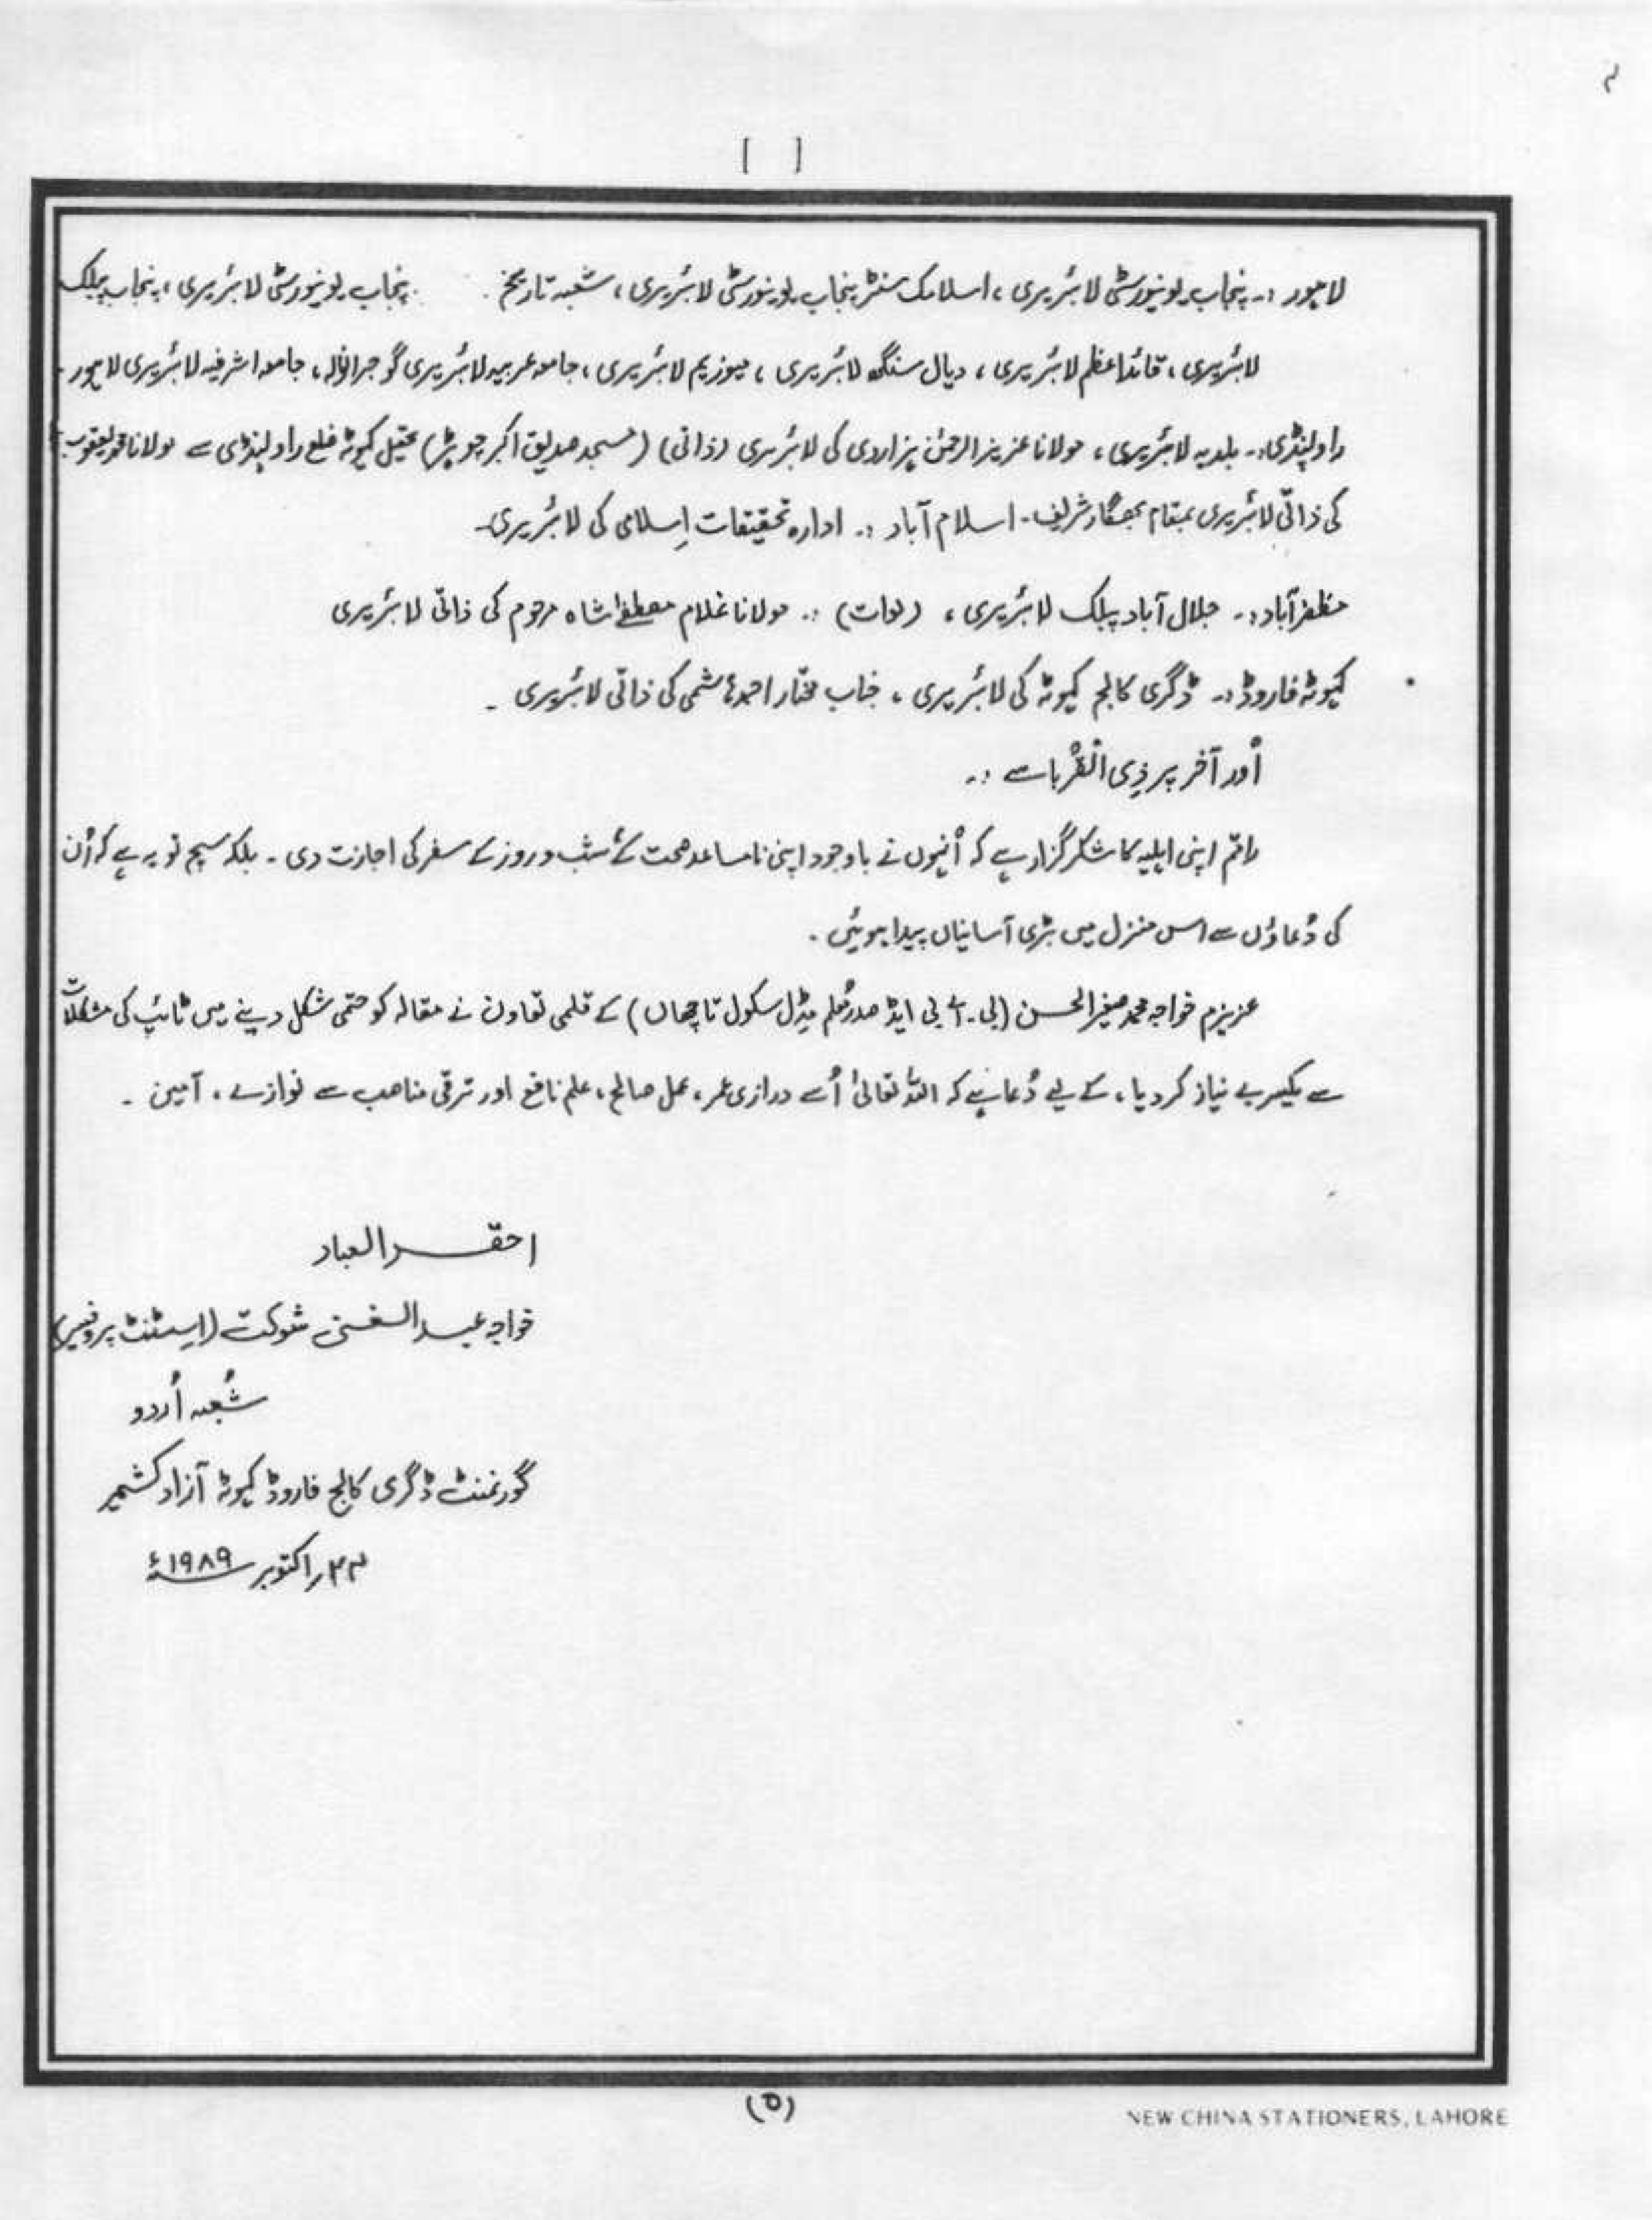 [ ]
لاہور :۔ پنجاب یونیورسٹی لائبریری ، اسلامک سنٹر پنجاب یونیورسٹی لائبریری ، شعبہ تاریخ پنجاب یونیورسٹی لائبریری ، پنجاب پبلک
لائبریری ، قائداعظم لائبریری ، دیال سنگھ لائبریری ، میوزیم لائبریری ، جامعہ عربیہ لائبریری گوجرانوالہ ، جامعہ اشرفیہ لائبریری لاہور۔
راولپنڈی :۔ بلدیہ لائبریری ، مولانا عزیز الرحمٰن ہزاروی کی لائبریری (ذاتی) (مسجد صدیق اکبر چوہڑ) تحصیل کہوٹہ ضلع راولپنڈی سے مولانا محمد یعقوب
کی ذاتی لائبریری بمقام بھگار شریف۔ اسلام آباد :۔ ادارہ تحقیقات اِسلامی کی لائبریری۔
مظفر آباد :۔ جلال آباد پبلک لائبریری ، (لوات) :۔ مولانا غلام مصطفےٰ شاہ مرحوم کی ذاتی لائبریری
کہوٹہ فاروڈ :۔ ڈگری کالج کہوٹہ کی لائبریری ، جناب مختار احمد ہاشمی کی ذاتی لائبریری ۔
اَور آخر پر ذِی الْقُرْبا سے :۔
راقم اپنی اہلیہ کا شکر گزار ہے کہ اُنہوں نے باوجود اپنی نا مساعد صحت کے شب و روز کے سفر کی اجازت دی ۔ بلکہ سچ تو یہ ہے کہ اُن
کی دُعاؤں سے اس منزل میں بڑی آسانیاں پیدا ہوئیں ۔
عزیزم خواجہ محمد صغیر الحسن (بی۔اے بی ایڈ صدر مُعلم مڈل سکول تاچھاں) کے قلمی تعاون نے مقالہ کو حتمی شکل دینے میں ٹائپ کی مشکلات
سے یکسر بے نیاز کر دیا ، کے لیے دُعا ہے کہ اللہ تعالیٰ اُسے درازی عمر ، عمل صالح ، علم نافع اور ترقی مناصب سے نوازے ، آمین ۔
احقر العباد
خواجہ عبد الغنی شوکت (اسسٹنٹ پروفیسر)
شُعبہ اُردو
گورنمنٹ ڈگری کالج فاروڈ کہوٹہ آزاد کشمیر
اکتوبر ۱۹۸۹ء
(۵)
NEW CHINA STATIONERS, LAHORE